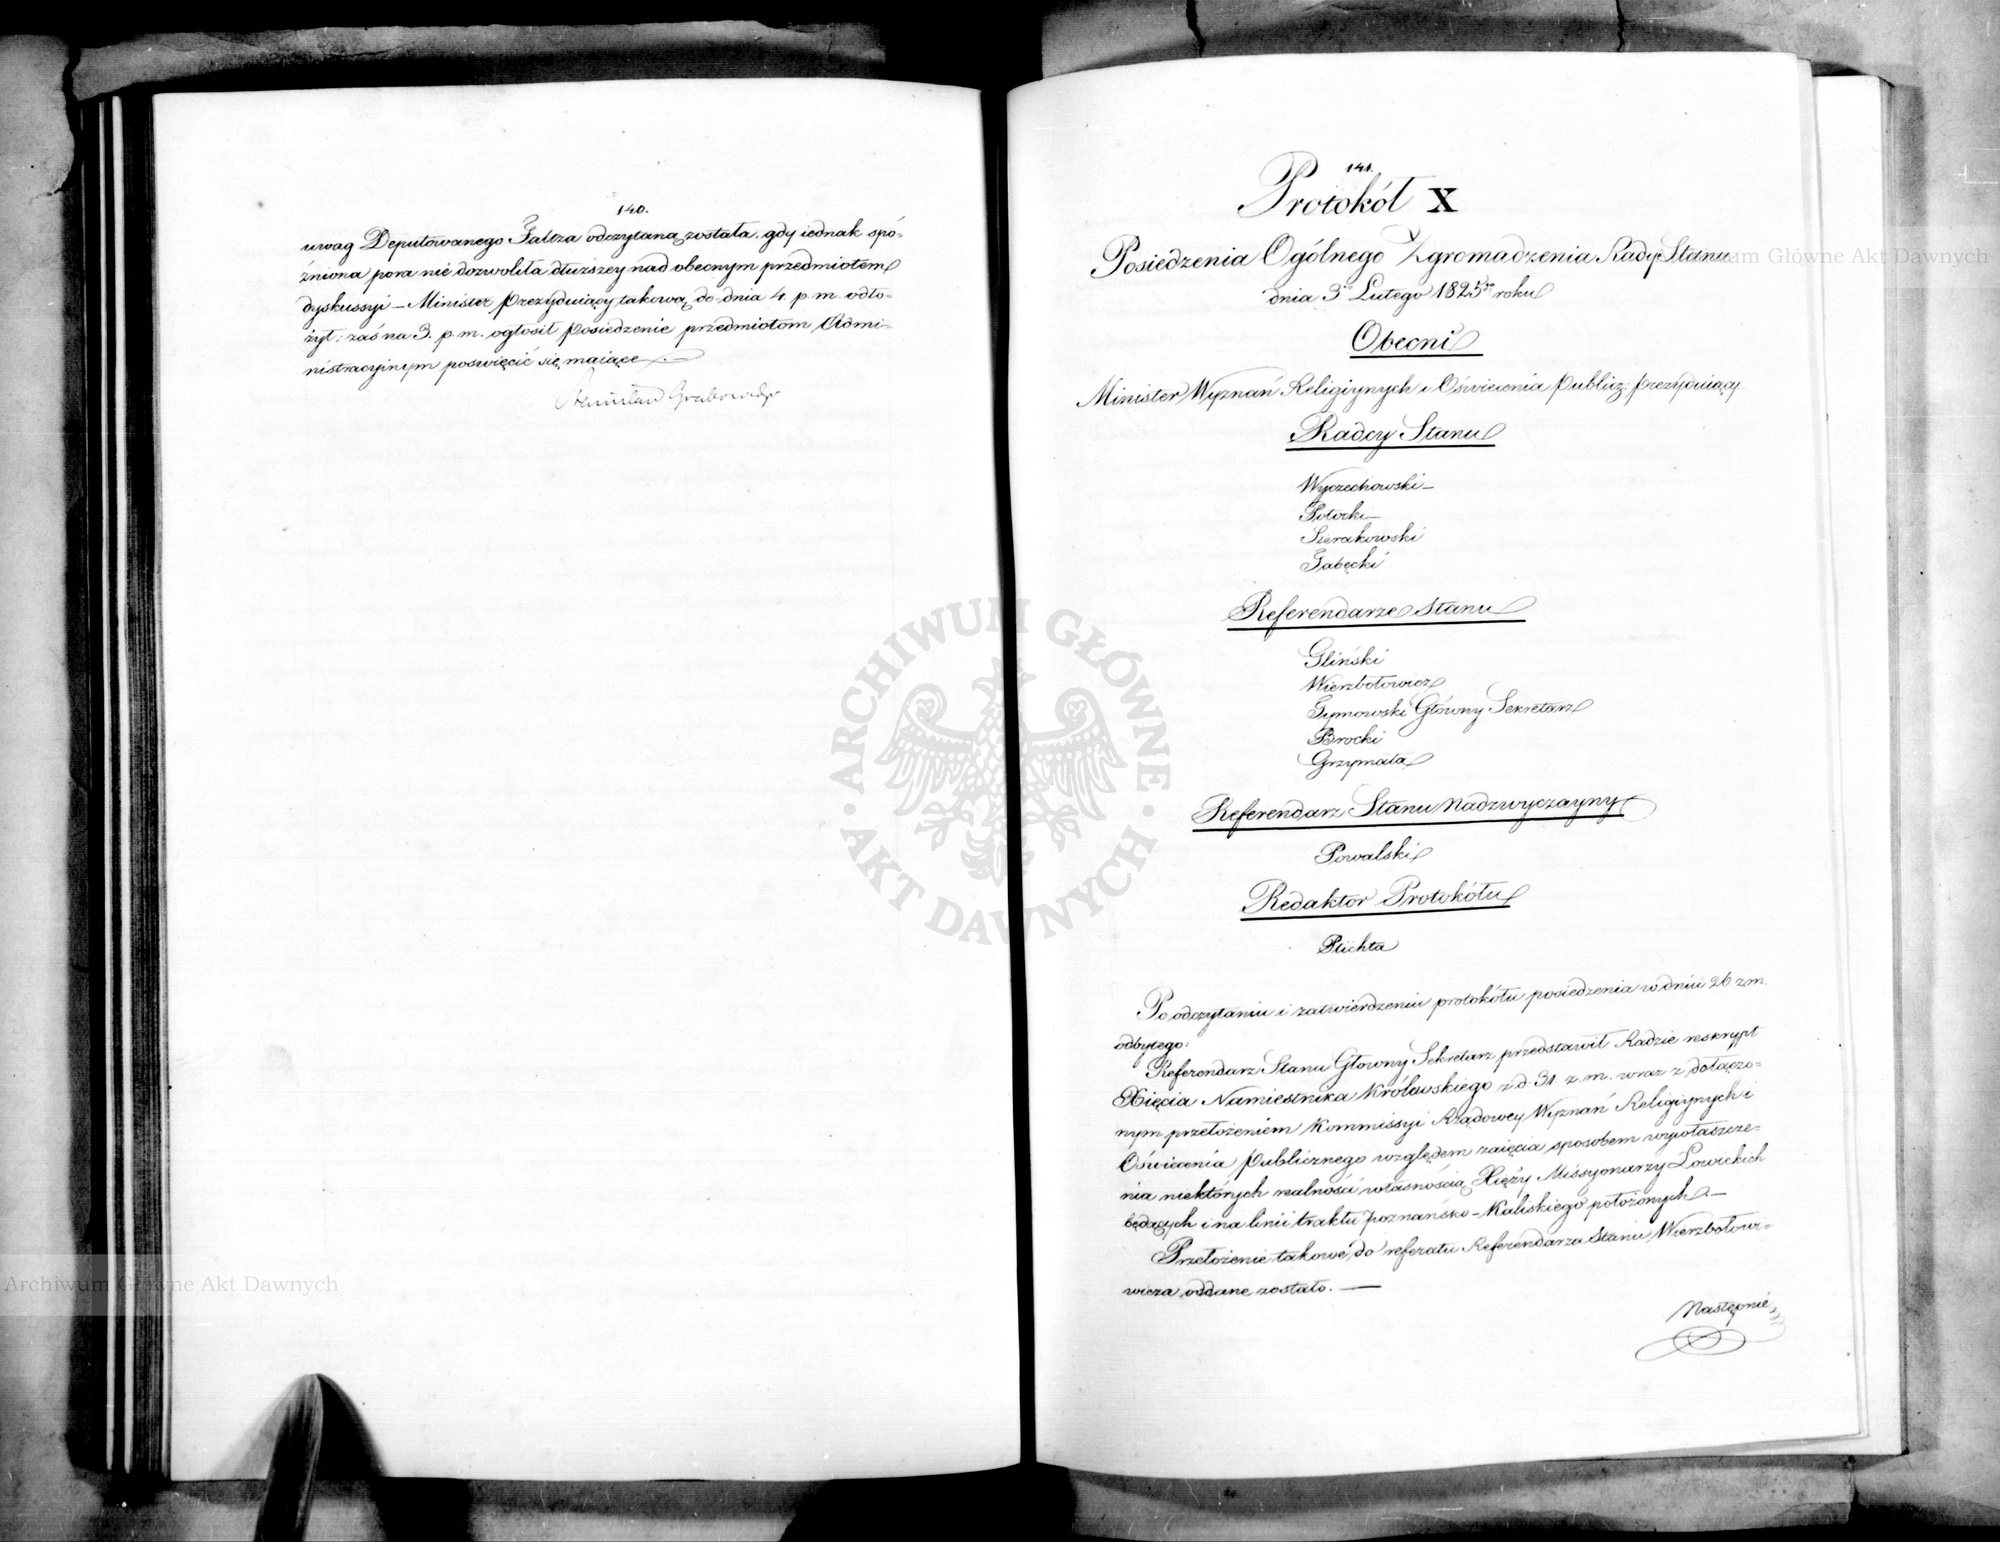 140.
uwag Deputowanego Faltza odczytaną została, gdy iednak spó-
źniona pora nie dozwoliła dłuższey nad obecnym przedmiotem
dyskussyi – Minister Prezyduiący takową do dnia 4 p. m. odło-
żył; zaś na 3. p. m. ogłosił Posiedzenie przedmiotom Admi-
nistracyjnym poswięcić się maiące –
Stanisław Grabowski
141.
Protokół X
Posiedzenia Ogólnego Zgromadzenia Rady Stanu
dnia 3 Lutego 1825 roku
Obecni
Minister Wyznań Religiynych i Oświecenia Publicz: Prezyduiący
Radcy Stanu
Wyczechowski –
Potocki –
Sierakowski
Gabęcki
Referendarze Stanu
Gliński
Wierzbołowicz
Tymowski Główny Sekretarz
Brocki
Grzymała
Referendarz Stanu Nadzwyczayny
Powalski
Redaktor Protokółu
Plichta
Po odczytaniu i zatwierdzeniu protokółu posiedzenia w dniu 26 z. m.
odbytego:
Referendarz Stanu Głowny Sekretarz przedstawił Radzie reskrypt
Xięcia Namiestnika Królewskiego z d. 31 z. m. wraz z dołączo-
nym przełożeniem Kommissyi Rządowey Wyznań Religiynych i
Oświecenia Publicznego względem zaięcia sposobem wywłaszcze-
nia niektórych realności własnością Xięży Missyonarzy Lowickich
będących i na linii traktu Poznańsko – Kaliskiego położonych. –
Przełożenie takowe, do referatu Referendarza Stanu Wierzbołowi-
wicza oddane zostało. —
Następnie
ARCHIWUM GŁÓWNE · AKT DAWNYCH ·
Archiwum Główne Akt Dawnych
Archiwum Główne Akt Dawnych